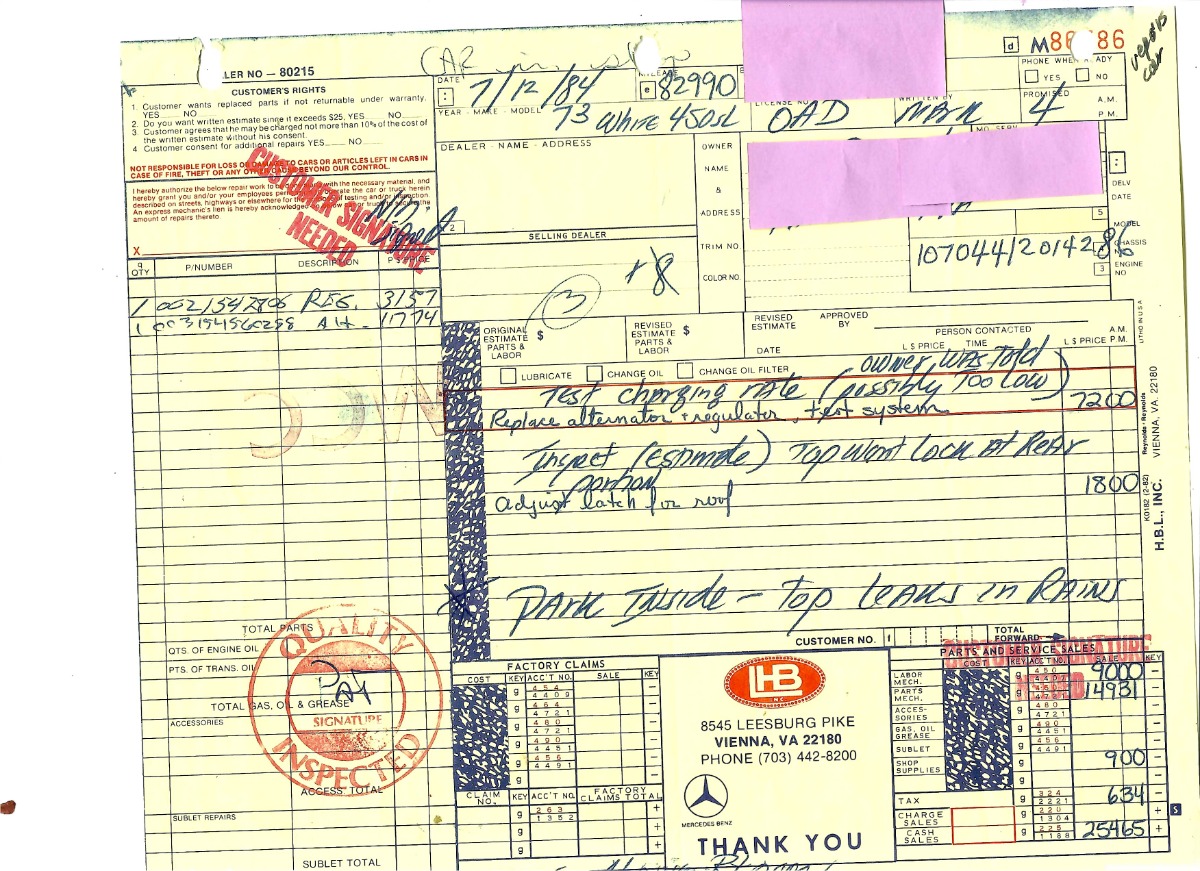 CAR in shop
d M86 86
DEALER NO — 80215
CUSTOMER'S RIGHTS
1. Customer wants replaced parts if not returnable under warranty.
YES NO
2. Do you want written estimate since it exceeds $25, YES NO
3. Customer agrees that he may be charged not more than 10% of the cost of
the written estimate without his consent.
4 Customer consent for additional repairs YES NO
NOT RESPONSIBLE FOR LOSS OR DAMAGE TO CARS OR ARTICLES LEFT IN CARS IN
CASE OF FIRE, THEFT OR ANY OTHER CAUSE BEYOND OUR CONTROL.
I hereby authorize the below repair work to be with the necessary material, and
hereby grant you and/or your employees operate the car or truck herein
described on streets, highways or elsewhere for the of testing and/or inspection.
An express mechanic's lien is hereby acknowledged
amount of repairs thereto
CUSTOMER SIGNATURE
NEEDED
X
DATE 7/12/84
MILEAGE e 82990
PHONE WHEN READY
YES NO
YEAR - MAKE - MODEL 73 White 450SL
LICENSE NO OAD
WRITTEN BY
PROMISED 4
A.M.
P.M.
DEALER - NAME - ADDRESS
OWNER
NAME
&
ADDRESS
TRIM NO.
COLOR NO.
2
SELLING DEALER
DELV
DATE
5
MODEL
CHASSIS
NO
3 ENGINE
NO
107044/2014286
+8
3
QTY P/NUMBER DESCRIPTION PRICE
1 0021542806 REG. 3157
1 003154560288 Alt. 11774
ORIGINAL
ESTIMATE $
PARTS &
LABOR
REVISED
ESTIMATE $
PARTS &
LABOR
REVISED
ESTIMATE
APPROVED
BY
DATE
PERSON CONTACTED
TIME
A.M.
P.M.
L $ PRICE L $ PRICE
LUBRICATE CHANGE OIL CHANGE OIL FILTER
owner was Told
Test charging rate (possibly Too Low)
Replace alternator + regulator, test system 7200
Inspect (estimate) Top Want Look At Rear
portion 1800
Adjust latch for roof
* PARK INSide - Top Leaks in RAINS
LITHO IN U.S.A.
Reynolds + Reynolds
K0182 (2-82)
H.B.L., INC. VIENNA, VA. 22180
TOTAL PARTS
QTS. OF ENGINE OIL
PTS. OF TRANS. OIL
TOTAL GAS, OIL & GREASE
ACCESSORIES
ACCESS TOTAL
SUBLET REPAIRS
SUBLET TOTAL
QUALITY
Pat
SIGNATURE
INSPECTED
CUSTOMER NO. 1
TOTAL
FORWARD
FACTORY CLAIMS
COST KEY ACC'T NO. SALE KEY
g 454 4409
g 464 4721
g 480 4721
g 490 4451
g 456 4491
g
CLAIM NO. KEY ACC'T NO. FACTORY CLAIMS TOTAL
g 263 1352
g
g
HB
INC.
8545 LEESBURG PIKE
VIENNA, VA 22180
PHONE (703) 442-8200
MERCEDES BENZ
THANK YOU
CUSTOMER SIGNATURE
NEEDED
PARTS AND SERVICE SALES
COST KEY ACC'T NO. SALE KEY
LABOR MECH. g 450 9000
PARTS MECH. g 4721 14931
ACCESSORIES g 480 4721
GAS, OIL GREASE g 490 4451
SUBLET g 456 4491
SHOP SUPPLIES g 900
TAX g 324 2221 634
CHARGE SALES g 220 1304
CASH SALES g 225 1188 25465
S